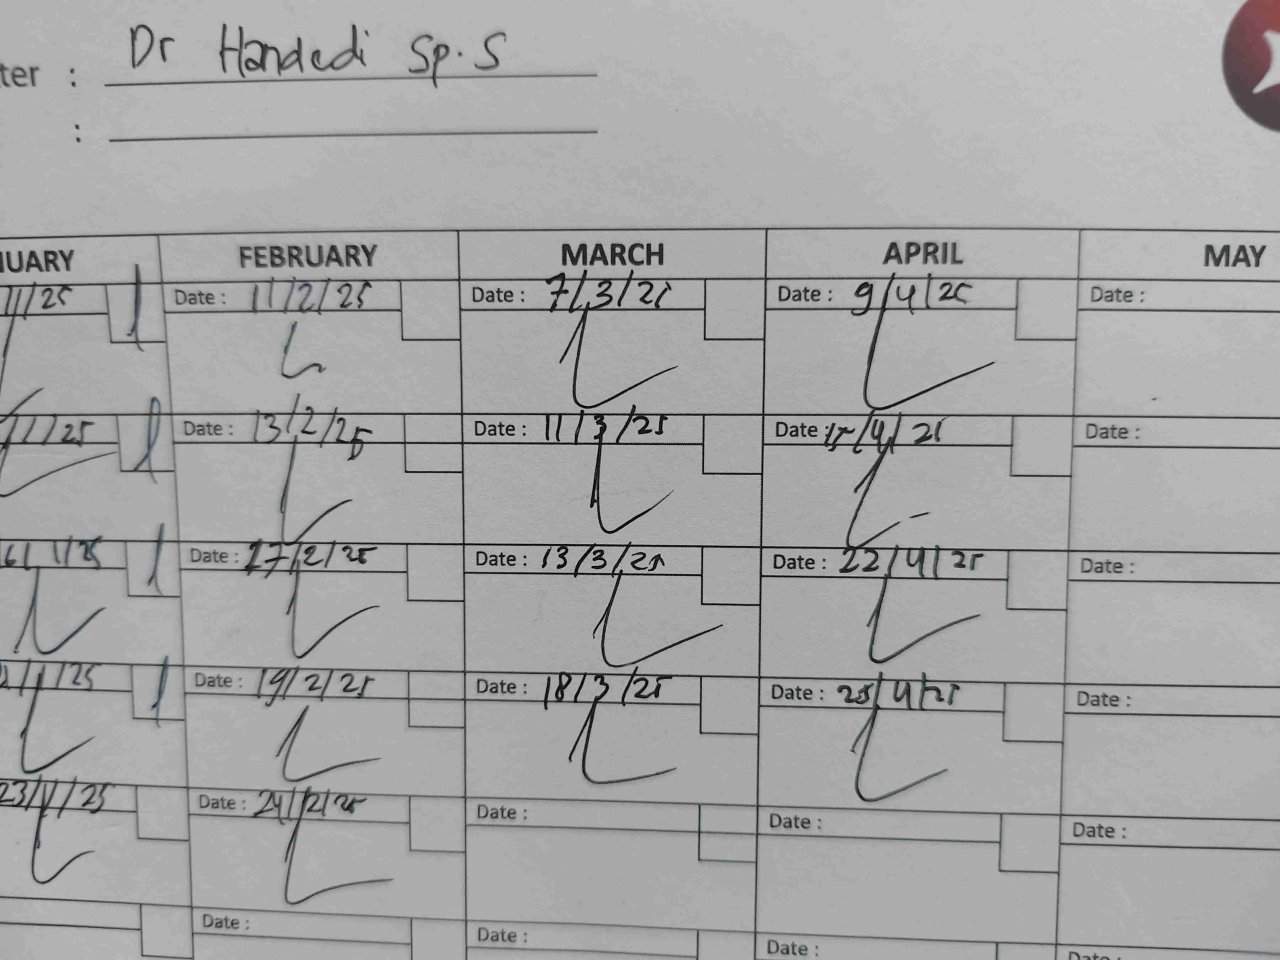 ter : Dr Handedi Sp.S
:
NUARY FEBRUARY MARCH APRIL MAY
/1/25 Date : 11/2/25 Date : 7/3/25 Date : 9/4/25 Date :
/1/25 Date : 13/2/25 Date : 11/3/25 Date : 15/4/25 Date :
6/1/25 Date : 17/2/25 Date : 13/3/25 Date : 22/4/25 Date :
2/1/25 Date : 19/2/25 Date : 18/3/25 Date : 25/4/25 Date :
23/1/25 Date : 24/2/25 Date : Date : Date :
Date : Date : Date : Date :